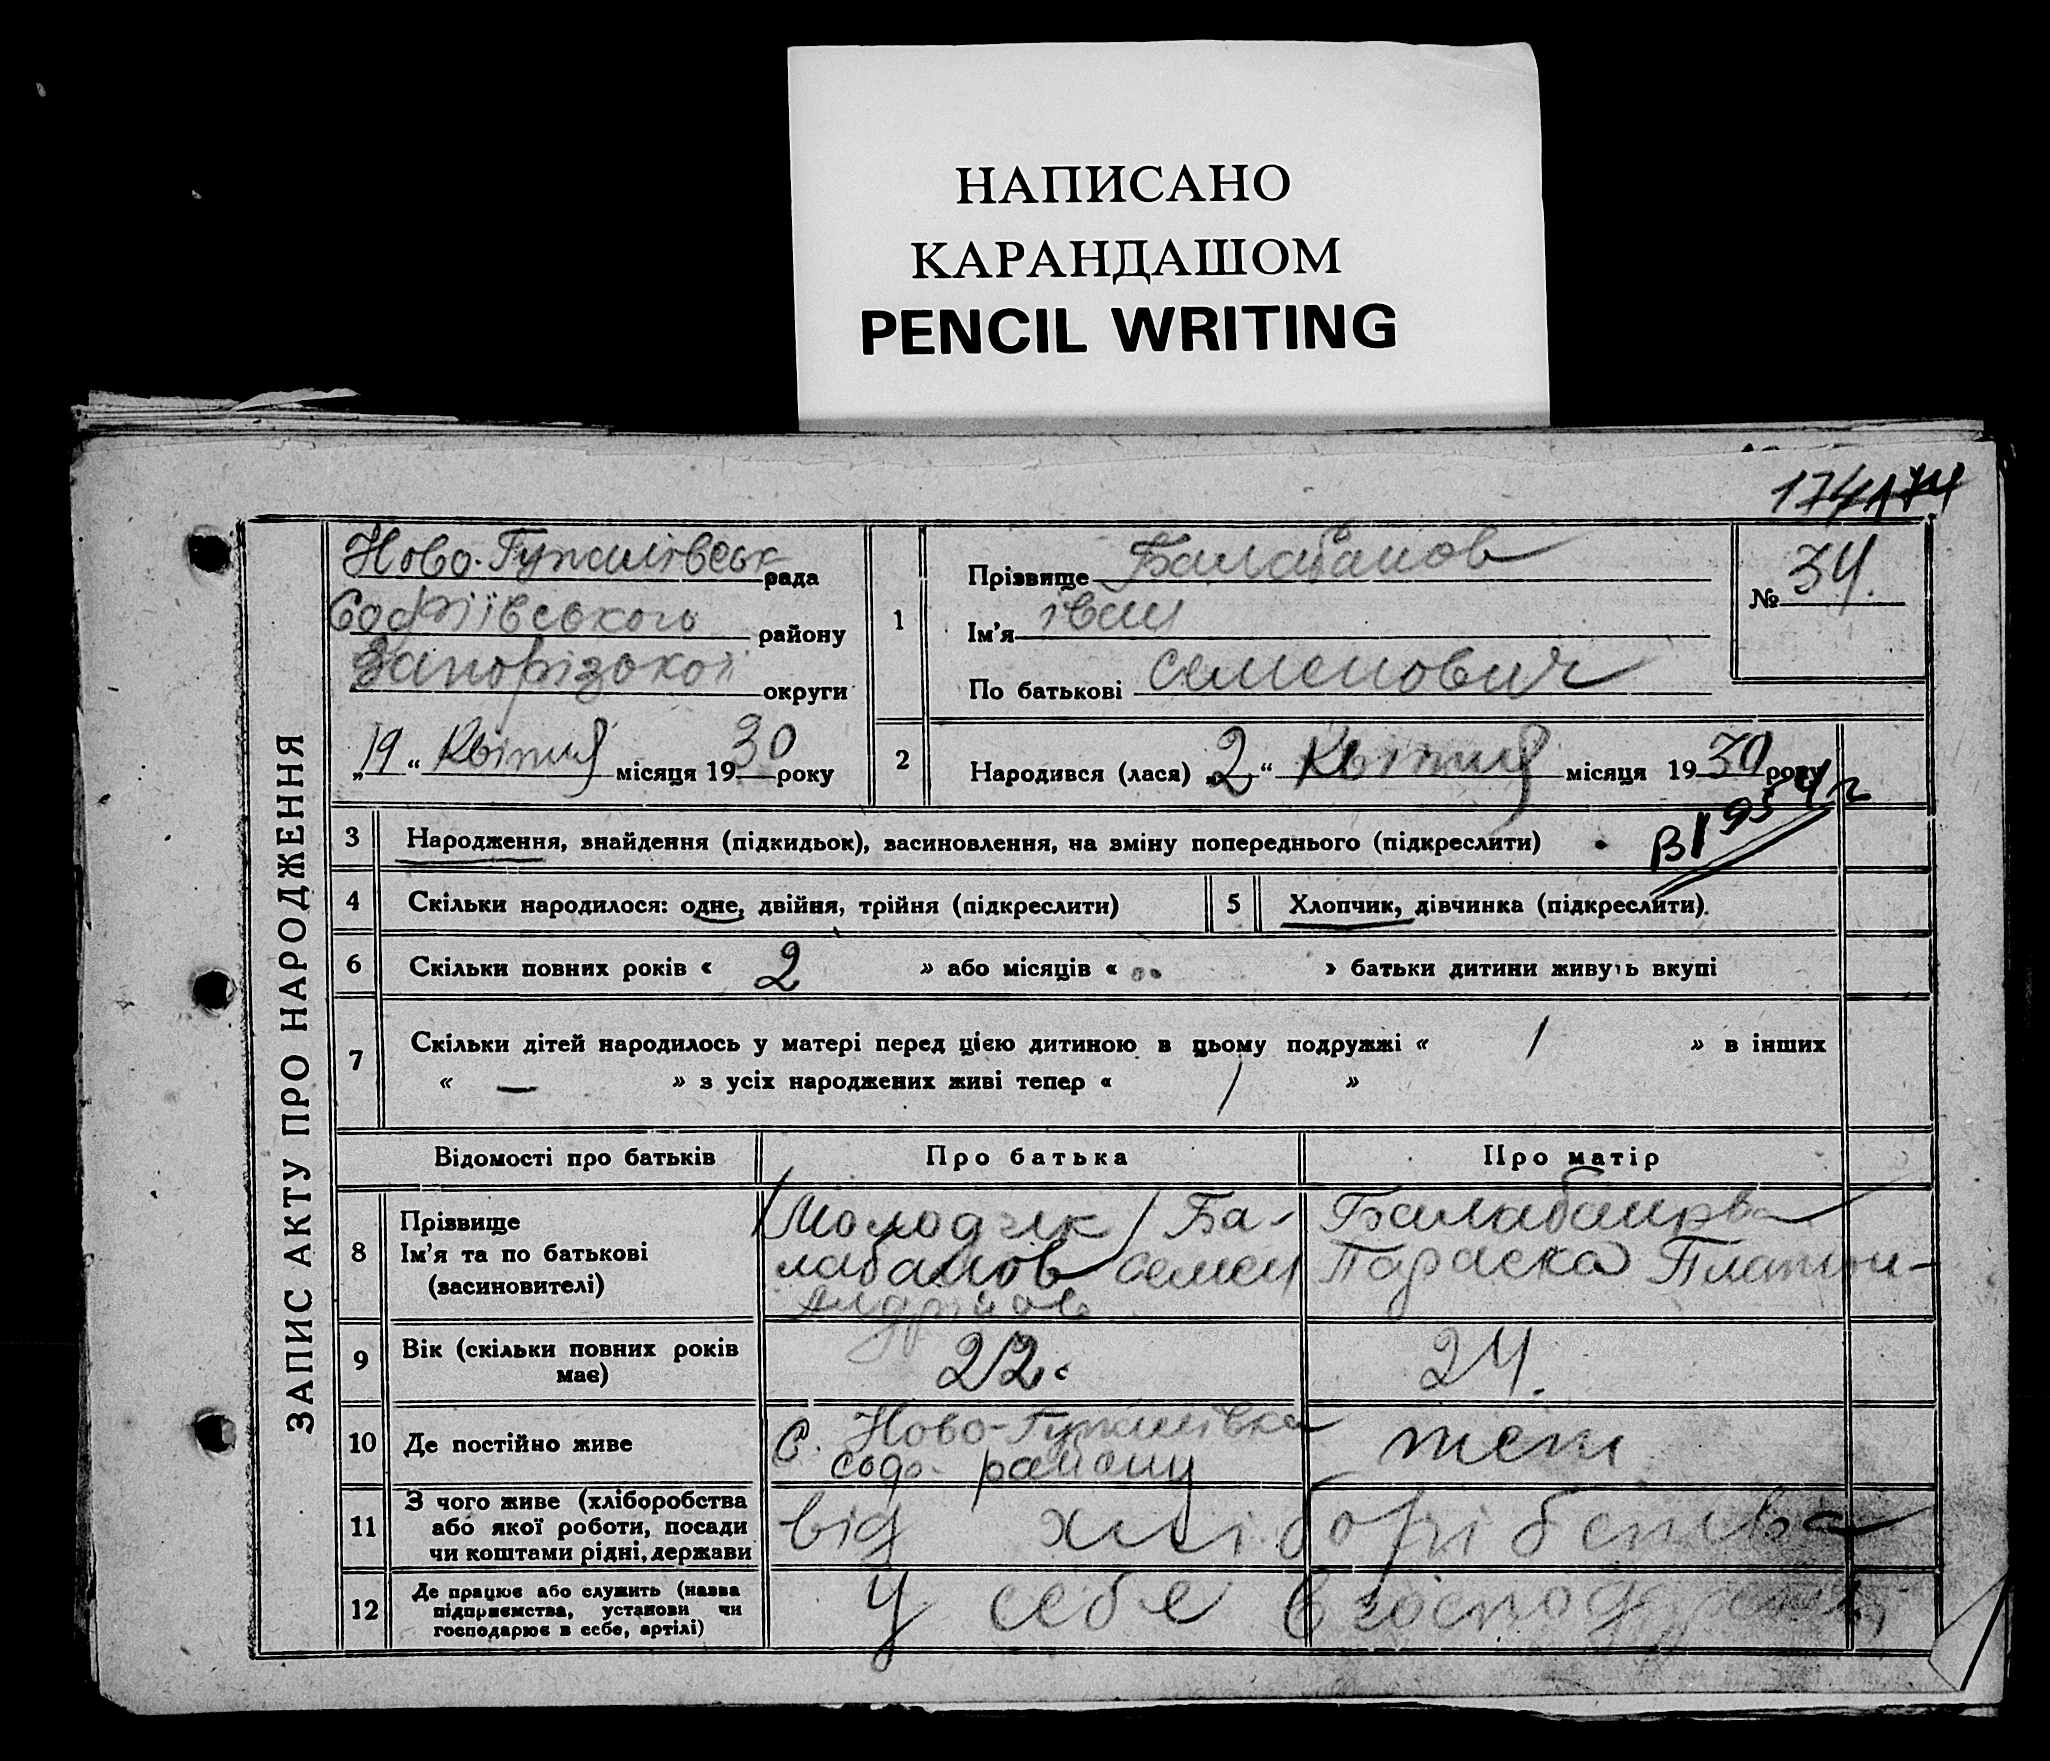 НАПИСАНО
КАРАНДАШОМ
PENCIL WRITING
174 174
ЗАПИС АКТУ ПРО НАРОДЖЕННЯ
Ново-Гупалівськ рада
Софіївського району
Запорізької округи
„19“ Квітня місяця 1930 року
1
Прізвище Балабанов
Ім'я іван
По батькові семенович
№ 34.
2 Народився (лася) „2“ Квітня місяця 1930 року
3 Народження, знайдення (підкидьок), засиновлення, на зміну попереднього (підкреслити)
4 Скільки народилося: одне, двійня, трійня (підкреслити) 5 Хлопчик, дівчинка (підкреслити).
6 Скільки повних років « 2 » або місяців « » батьки дитини живуть вкупі
7 Скільки дітей народилось у матері перед цією дитиною в цьому подружжі « 1 » в інших
« — » з усіх народжених живі тепер « 1 »
Відомості про батьків Про батька Про матір
8
Прізвище
Ім'я та по батькові
(засиновителі)
/Молодчик/ Ба-
лабанов семен
Андрійов
Балабанова
Параска Платон-
9 Вік (скільки повних років
має)
22. 24.
10 Де постійно живе
с. Ново-Гупалівка
соф. району
теж
11 З чого живе (хліборобства
або якої роботи, посади
чи коштами рідні, держави
від хліборібства
12 Де працює або служить (назва
підприємства, установи чи
господарює в себе, артілі)
у себе в господарстві